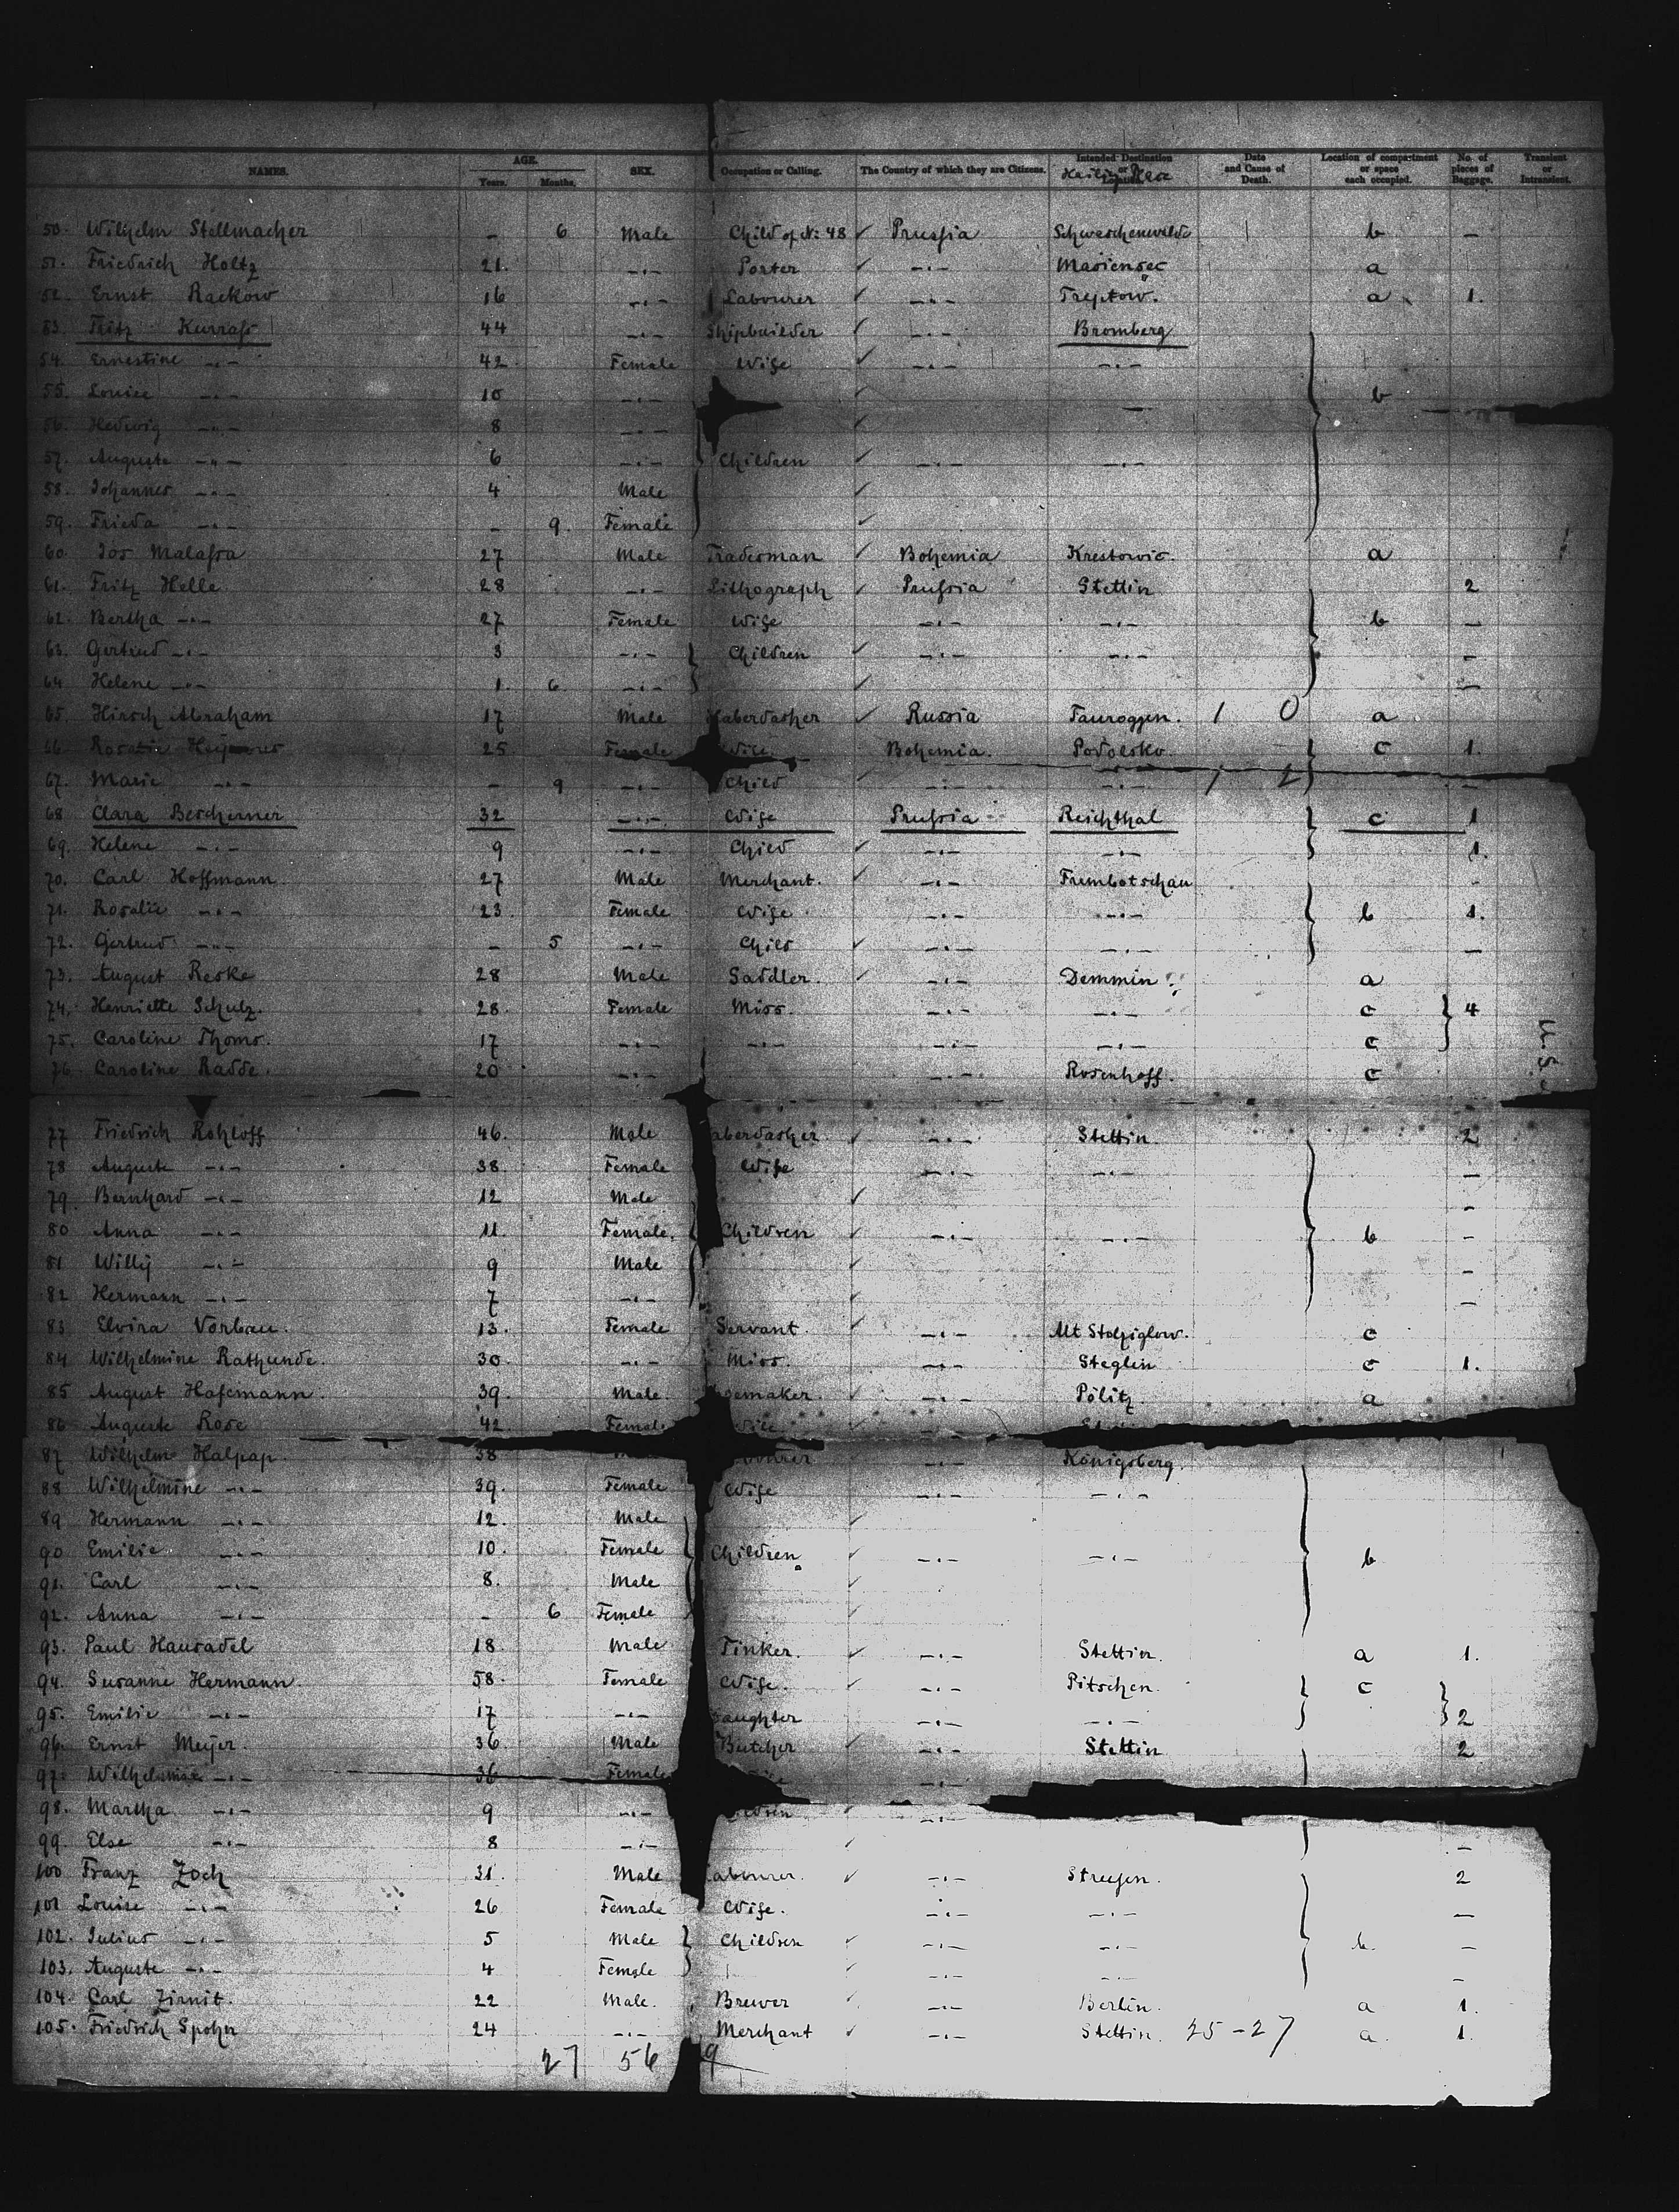 NAMES. AGE. Years. Months. SEX. Occupation or Calling. The Country of which they are Citizens. Intended Destination or Date and Cause of Death. Location of compartment or space each occupied. No. of pieces of Baggage. Transient or Intransient.
50. Wilhelm Stellmacher - 6 Male Child of N: 48 Prussia b -
51. Friedrich Holtz 21. -"- Porter -"- Mariensee a
52. Ernst Rackow 16 -"- Labourer -"- Treptow. a 1.
53. Fritz Kurrass 44 -"- Shipbuilder -"- Bromberg
54. Ernestine -"- 42. Female Wife -"- -"-
55. Louise -"- 10 -"- b
56. Hedwig -"- 8 -"-
57. Auguste -"- 6 -"- Children -"- -"-
58. Johannes -"- 4 Male
59. Frieda -"- - 9. Female
60. Jos Malassa 27 Male Tradesman Bohemia a
61. Fritz Helle. 28 -"- Lithograph Prussia Stettin 2
62. Bertha -"- 27 Female Wife -"- -"- b -
63. Gertrud -"- 3 -"- Children -"- -"- -
64. Helene -"- 1. 6 -"- -
65. Hirsch Abraham 17 Male Haberdasher Russia Tauroggen. 1 0 a
66. Rosalie 25 Female Wife Bohemia. Podolsko c 1.
67. Marie -"- - 9 -"- Child -"- -"- -
68 Clara Bescherner 32 -"- Wife Prussia Reichthal c 1
69. Helene -"- 9 -"- Child -"- -"- 1.
70. Carl Hoffmann. 27 Male Merchant. -"- Trembotschau -
71. Rosalie -"- 23. Female Wife -"- -"- b 1.
72. Gertrud -"- - 5 -"- Child -"- -"- -
73. August Reske 28 Male Saddler. -"- Demmin a
74. Henriette Schulz. 28. Female Miss. -"- -"- c 4
75. Caroline Thoms. 17 -"- -"- -"- -"- c
76. Caroline Radde. 20 -"- -"- Rosenhoff. c
77 Friedrich Rohloff 46. Male aberdasher -"- Stettin 2
78 Auguste -"- 38. Female Wife -"- -"- -
79. Bernhard -"- 12 Male -
80 Anna -"- 11. Female. Children -"- -"- b -
81 Willy -"- 9 Male -
82 Hermann -"- 7 -"- -
83 Elvira Vorbau. 13. Female Servant. -"- c
84 Wilhelmine Rathunde. 30. -"- Miss. -"- Steglin c 1.
85 August Hasemann. 39. Male. emaker. -"- Pölitz a
86 Auguste Rose 42 Female Wife -"-
87 Wilhelm Halpap. 38 -"- Königsberg.
88 Wilhelmine -"- 39. Female Wife -"- -"-
89 Hermann -"- 12. Male
90 Emilie -"- 10. Female Children -"- -"- b
91. Carl -"- 8. Male
92. Anna -"- - 6 Female
93. Paul Hausadel 18 Male Tinker. -"- Stettin. a 1.
94. Susanne Hermann. 58. Female Wife. -"- Pitschen. c
95. Emilie -"- 17 -"- Daughter -"- -"- 2
96. Ernst Meyer. 36. Male Butcher -"- Stettin 2
97. Wilhelmine -"- 36 Female -"-
98. Martha -"- 9 -"- -"-
99. Else -"- 8 -"- -
100 Franz Zoch 31. Male abourer. -"- 2
101 Louise -"- 26 Female Wife. -"- -"- -
102. Julius -"- 5 Male Children -"- -"- b. -
103. Auguste -"- 4 Female -"- -"- -
104. Carl Zirnit. 22 Male. Brewer -"- Berlin. a 1.
105. Friedrich Spohn 24 -"- Merchant -"- Stettin. 25-27 a. 1.
27 56 9